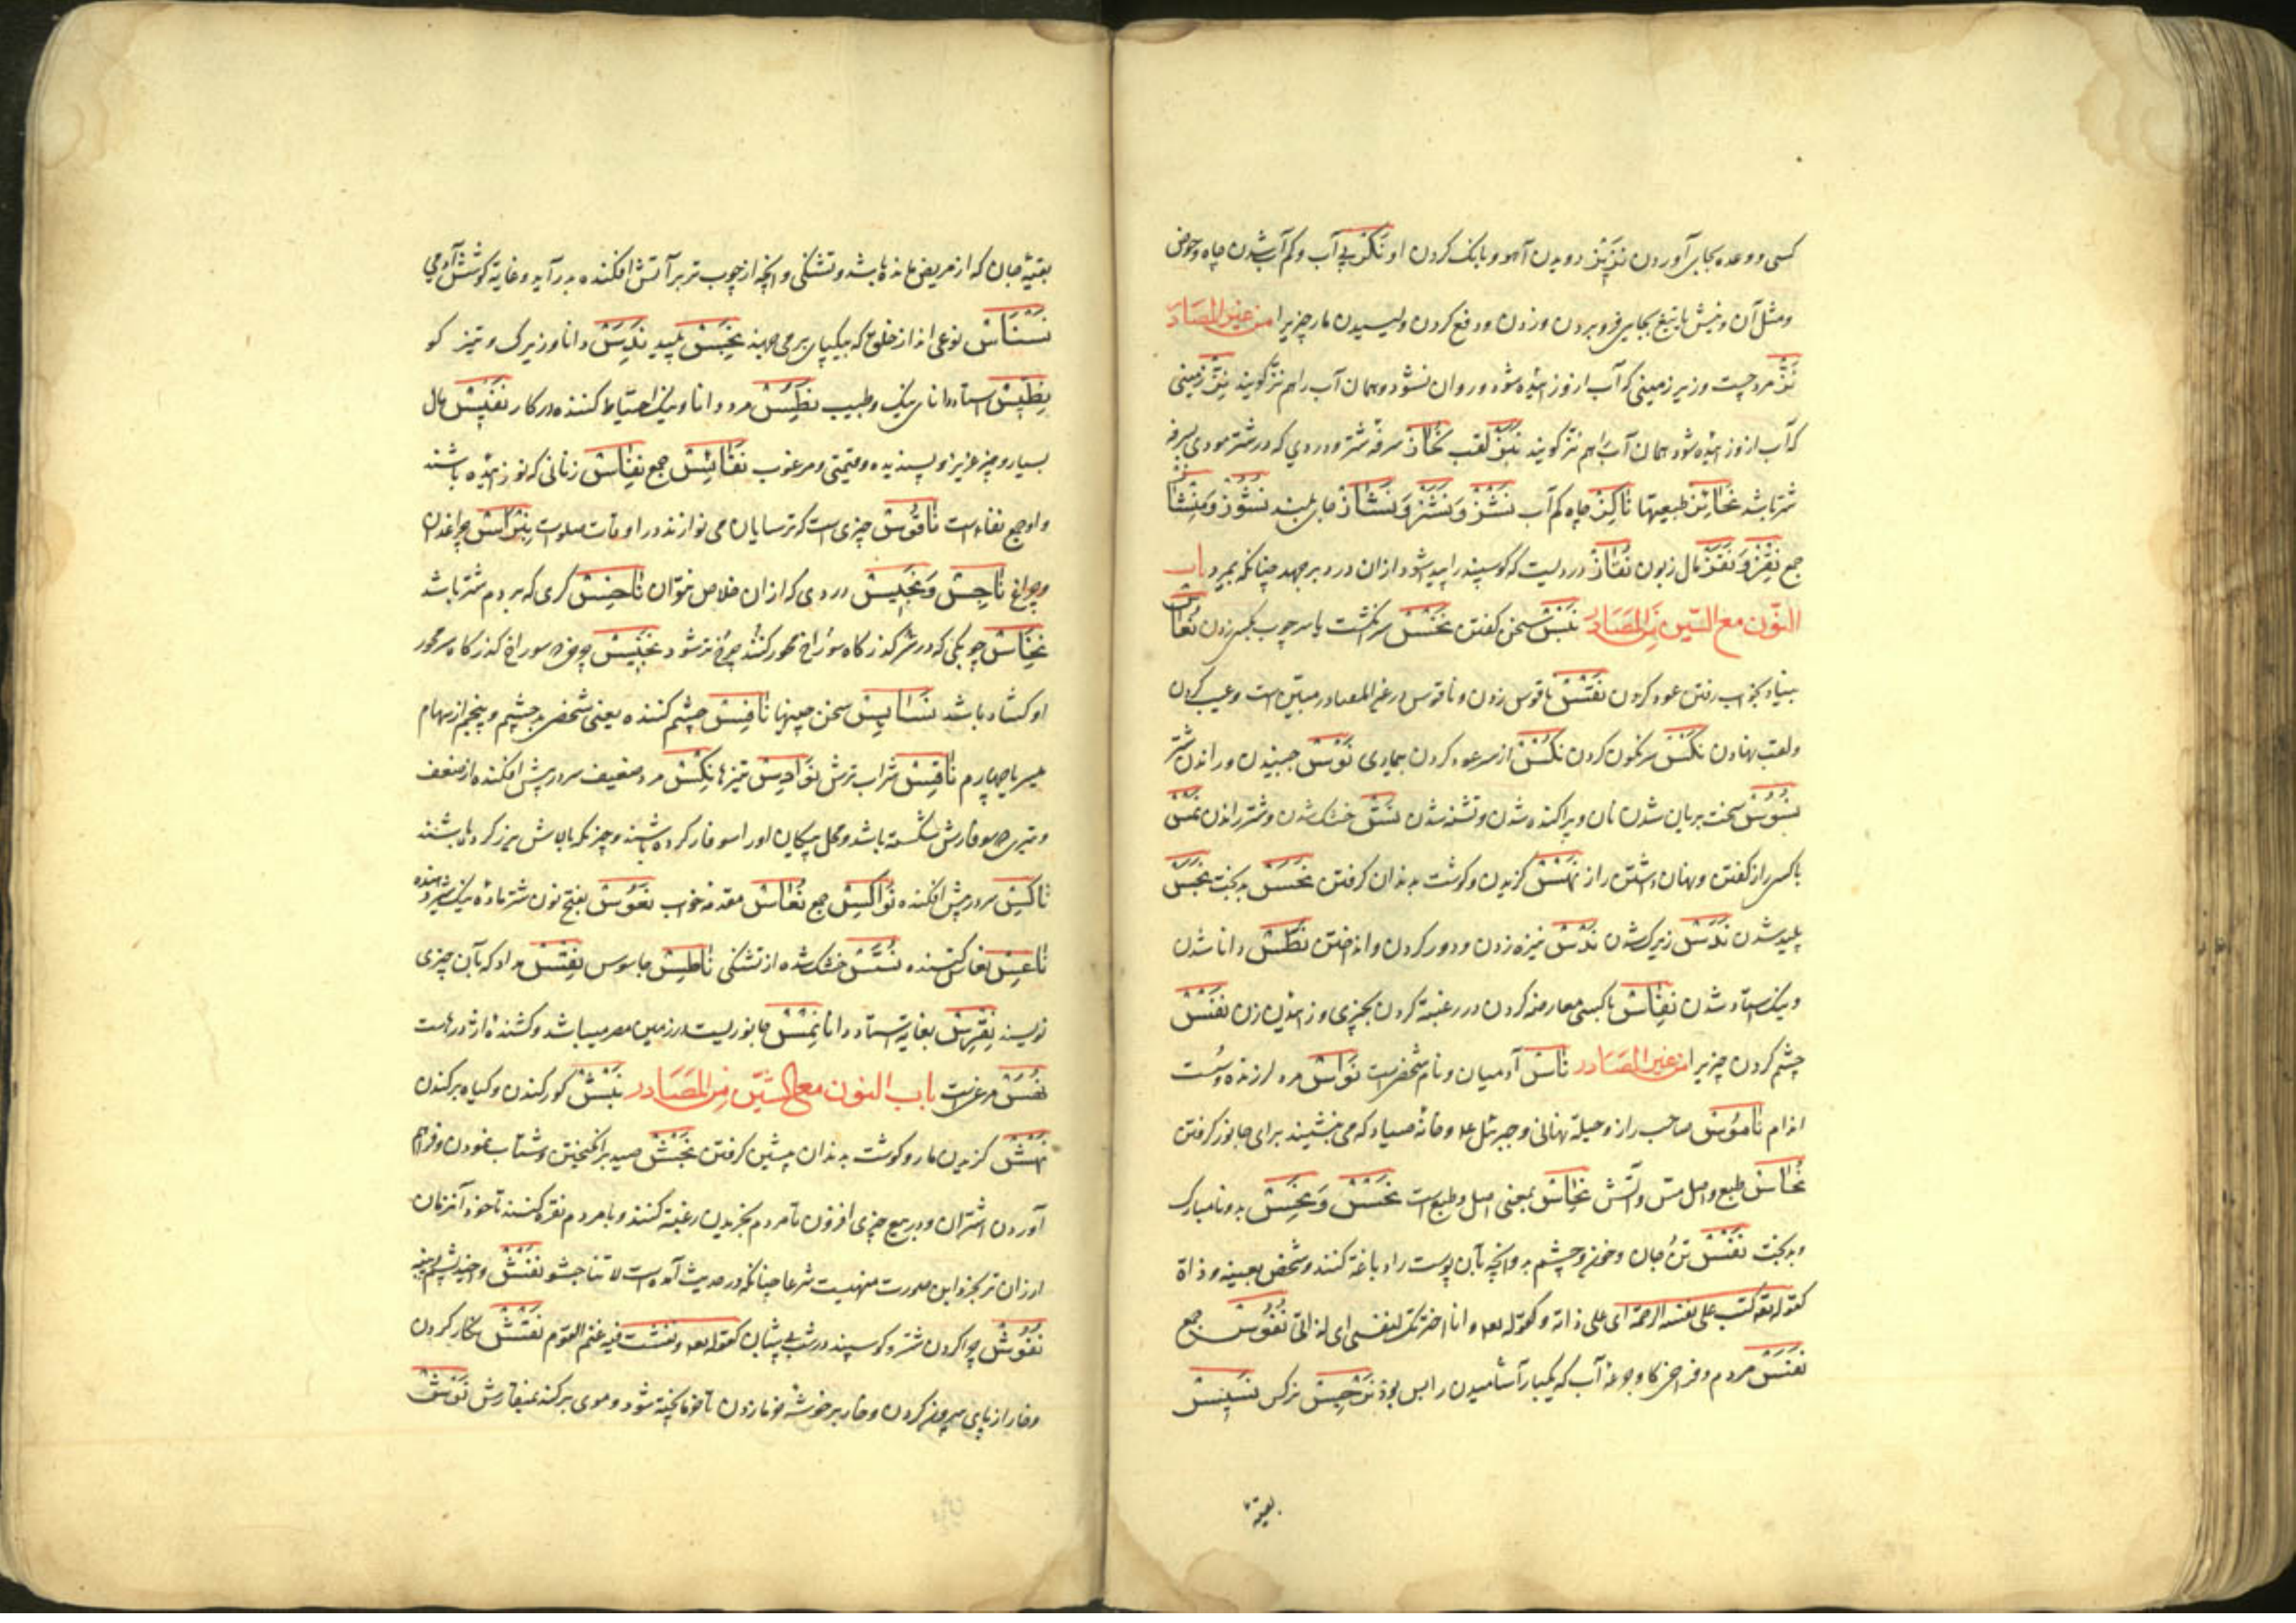 کسی و وعده بجای آوردن نَزِیز دویدن آهو و بانک کردن او نَکز بی آب و کم آب شدن چاه و حوض
و مثل آن و نیش یا تیغ بجایی فرو بردن و زدن و دفع کردن و لیسیدن مار چیزیرا من غیر المصادر
نَزّ مرد چست و زیر زمینی که آب ازو زاییده شود و روان نشود و همان آب را هم نزّ گویند نِزّ زمینی
که آب ازو زاییده شود همان آب را هم نزّ گویند نَبز لقب نُحاز سرفه شتر و دردی که در شتر بودی سرفه
شتر باشد نحائز طبیعتها ناکز چاه کم آب نَشْز وَنَشَز وَنَشاز جای بلند نشوز
جمع نِقز وَنَقَز مال زبون نُقاز دردیست که گوسپند را پیدا شود از ان درد برجهد چنانکه بمیرد باب
النّون مع السّین من المصادر نَبْس سخن گفتن نَخْس سر انگشت یا سر چوب بکسی زدن نُعاس
بخواب رفتن عود کردن نَقْس ناقوس زدن و ناقوس در غیر المصادر مبیّن است و عیب کردن
و لقب نهادن نَکْس سرنگون کردن نُکْس از سر عود کردن بیماری نَوْس جنبیدن و راندن شتر
نُسُوس سخت بریان شدن نان و پراکنده شدن و تشنه شدن نَسّ خشک شدن و شتر راندن نَمْس
با کسی راز گفتن و نهان داشتن راز نَهْس گزیدن و گوشت بدندان گرفتن نَحس بدبخت نَجَس
پلید شدن نَدَس زیرک شدن نَدْس نیزه زدن و دور کردن و انداختن نَطَس دانا شدن
و نیک استاد شدن نِفاس با کسی معارضه کردن در رغبة کردن بچیزی و زاییدن زن نَفْس
چشم کردن چیزیرا من غیر المصادر ناس آدمیان و نام شخصی است نَوّاس مرد لرزنده و سست
اندام نامُوس صاحب راز و حیلهٔ نهانی و جبرئیل و خانهٔ صیاد که می نشیند برای جانور گرفتن
نُحاس طبع و اصل مس و آتش نِحاس بمعنی اصل و طبع است نَحْس وَ نَحِس بد و نامبارک
و بدبخت نَفْس تن و جان و خون و چشم بد و آنچه بآن پوست را دباغة کنند و شخص بعینه و ذاة
کقوله تعه کتب علی نفسه الرحمة ای علی ذاته و کقوله تعه و انا اخترتک لنفسی ای لذاتی نُفُوس جمع
نَفَس مردم و فراخی کار و جرعهٔ آب که یکبار آشامیدن را بس بود نَرجِس نرکس نَسِیس
بقیة
بقیهٔ جان که از مریض مانده باشد و تشنگی و آنچه از چوب تر بر آتش افکنده بدر آید و غایة کوشش آدمی
نَسْناس نوعی اند از خلق که بیکپای بر می جهند نَجِس پلید نَدِس دانا و زیرک و تیز کو
نِطّیس استاد دانای نیک و طبیب نَطِس مرد دانا و نیک احتیاط کننده در کار نَفِیس مال
بسیار و چیز عزیز و پسندیده و قیمتی و مرغوب نَفائِس جمع نِفاس زنانی که نو زاییده باشند
و او جمع نفساء است ناقُوس چیزی است که ترسایان می نوازند در اوقات صلوات نِبراس چراغدان
و چراغ ناجِس وَ نَجِیس دردی که از ان خلاص نتوان ناخِس گری که بر دم شتر باشد
نِخاس چوبکی که در گذرگاه سوراخ محور کنند چو فراخ تر شود نَخِیس چرخی سوراخ گذرگاه محور
او کشاد باشد سخن چینیها نافِس چشم کننده یعنی شخص بد چشم و پنجم از سهام
میسر یا چهارم ناقِس شراب ترش نَوادِس تیزها نِکْس مرد ضعیف سر در پیش افکنده از ضعف
و تیری که سوفارش شکسته باشد و محل پیکان او را سوفار کرده باشند و چیزیکه بالاش زیر کرده باشند
ناکِس سر در پیش افکنده نَواکِس جمع نُعاس مقدمهٔ خواب نَعُوس بفتح نون شتر ماده نیک شیر دهنده
ناعِس نعاس کننده نَسَس خشک شده از تشنگی ناطِس جاسوس نِقْس مداد که بآن چیزی
نویسند نِقْرِس بغایة استاد دانا نِمْس جانوریست در زمین مصر میباشد و کشندهٔ اژدرهاست
مرغیست باب النون مع الشّین من المصادر نَبْش کور کندن و گیاه برکندن
نَهْش گزیدن مار و گوشت بدندان پیشین گرفتن نَجْش صید برانگیختن و شتاب نمودن و فراهم
آوردن اشتران و در بیع چیزی افزودن تا مردم بخریدن رغبة کنند و با مردم نفرة کنند تا خود آنرا از ان
ارزان تر بخرد و این صورت منهیست شرعا چنانکه در حدیث آمده است لا تناجشوا نَفْش واخیدن پشم و پنبه
نُفُوش چرا کردن شتر و گوسپند در شب بی شبان کقوله تعه و نفشت فیه غنم القوم نَقْش نگار کردن
و خار از پای بیرون کردن و خار بر خوشهٔ خرما زدن تا خرما پخته شود و موی برکندن بمنقاش نَوْش